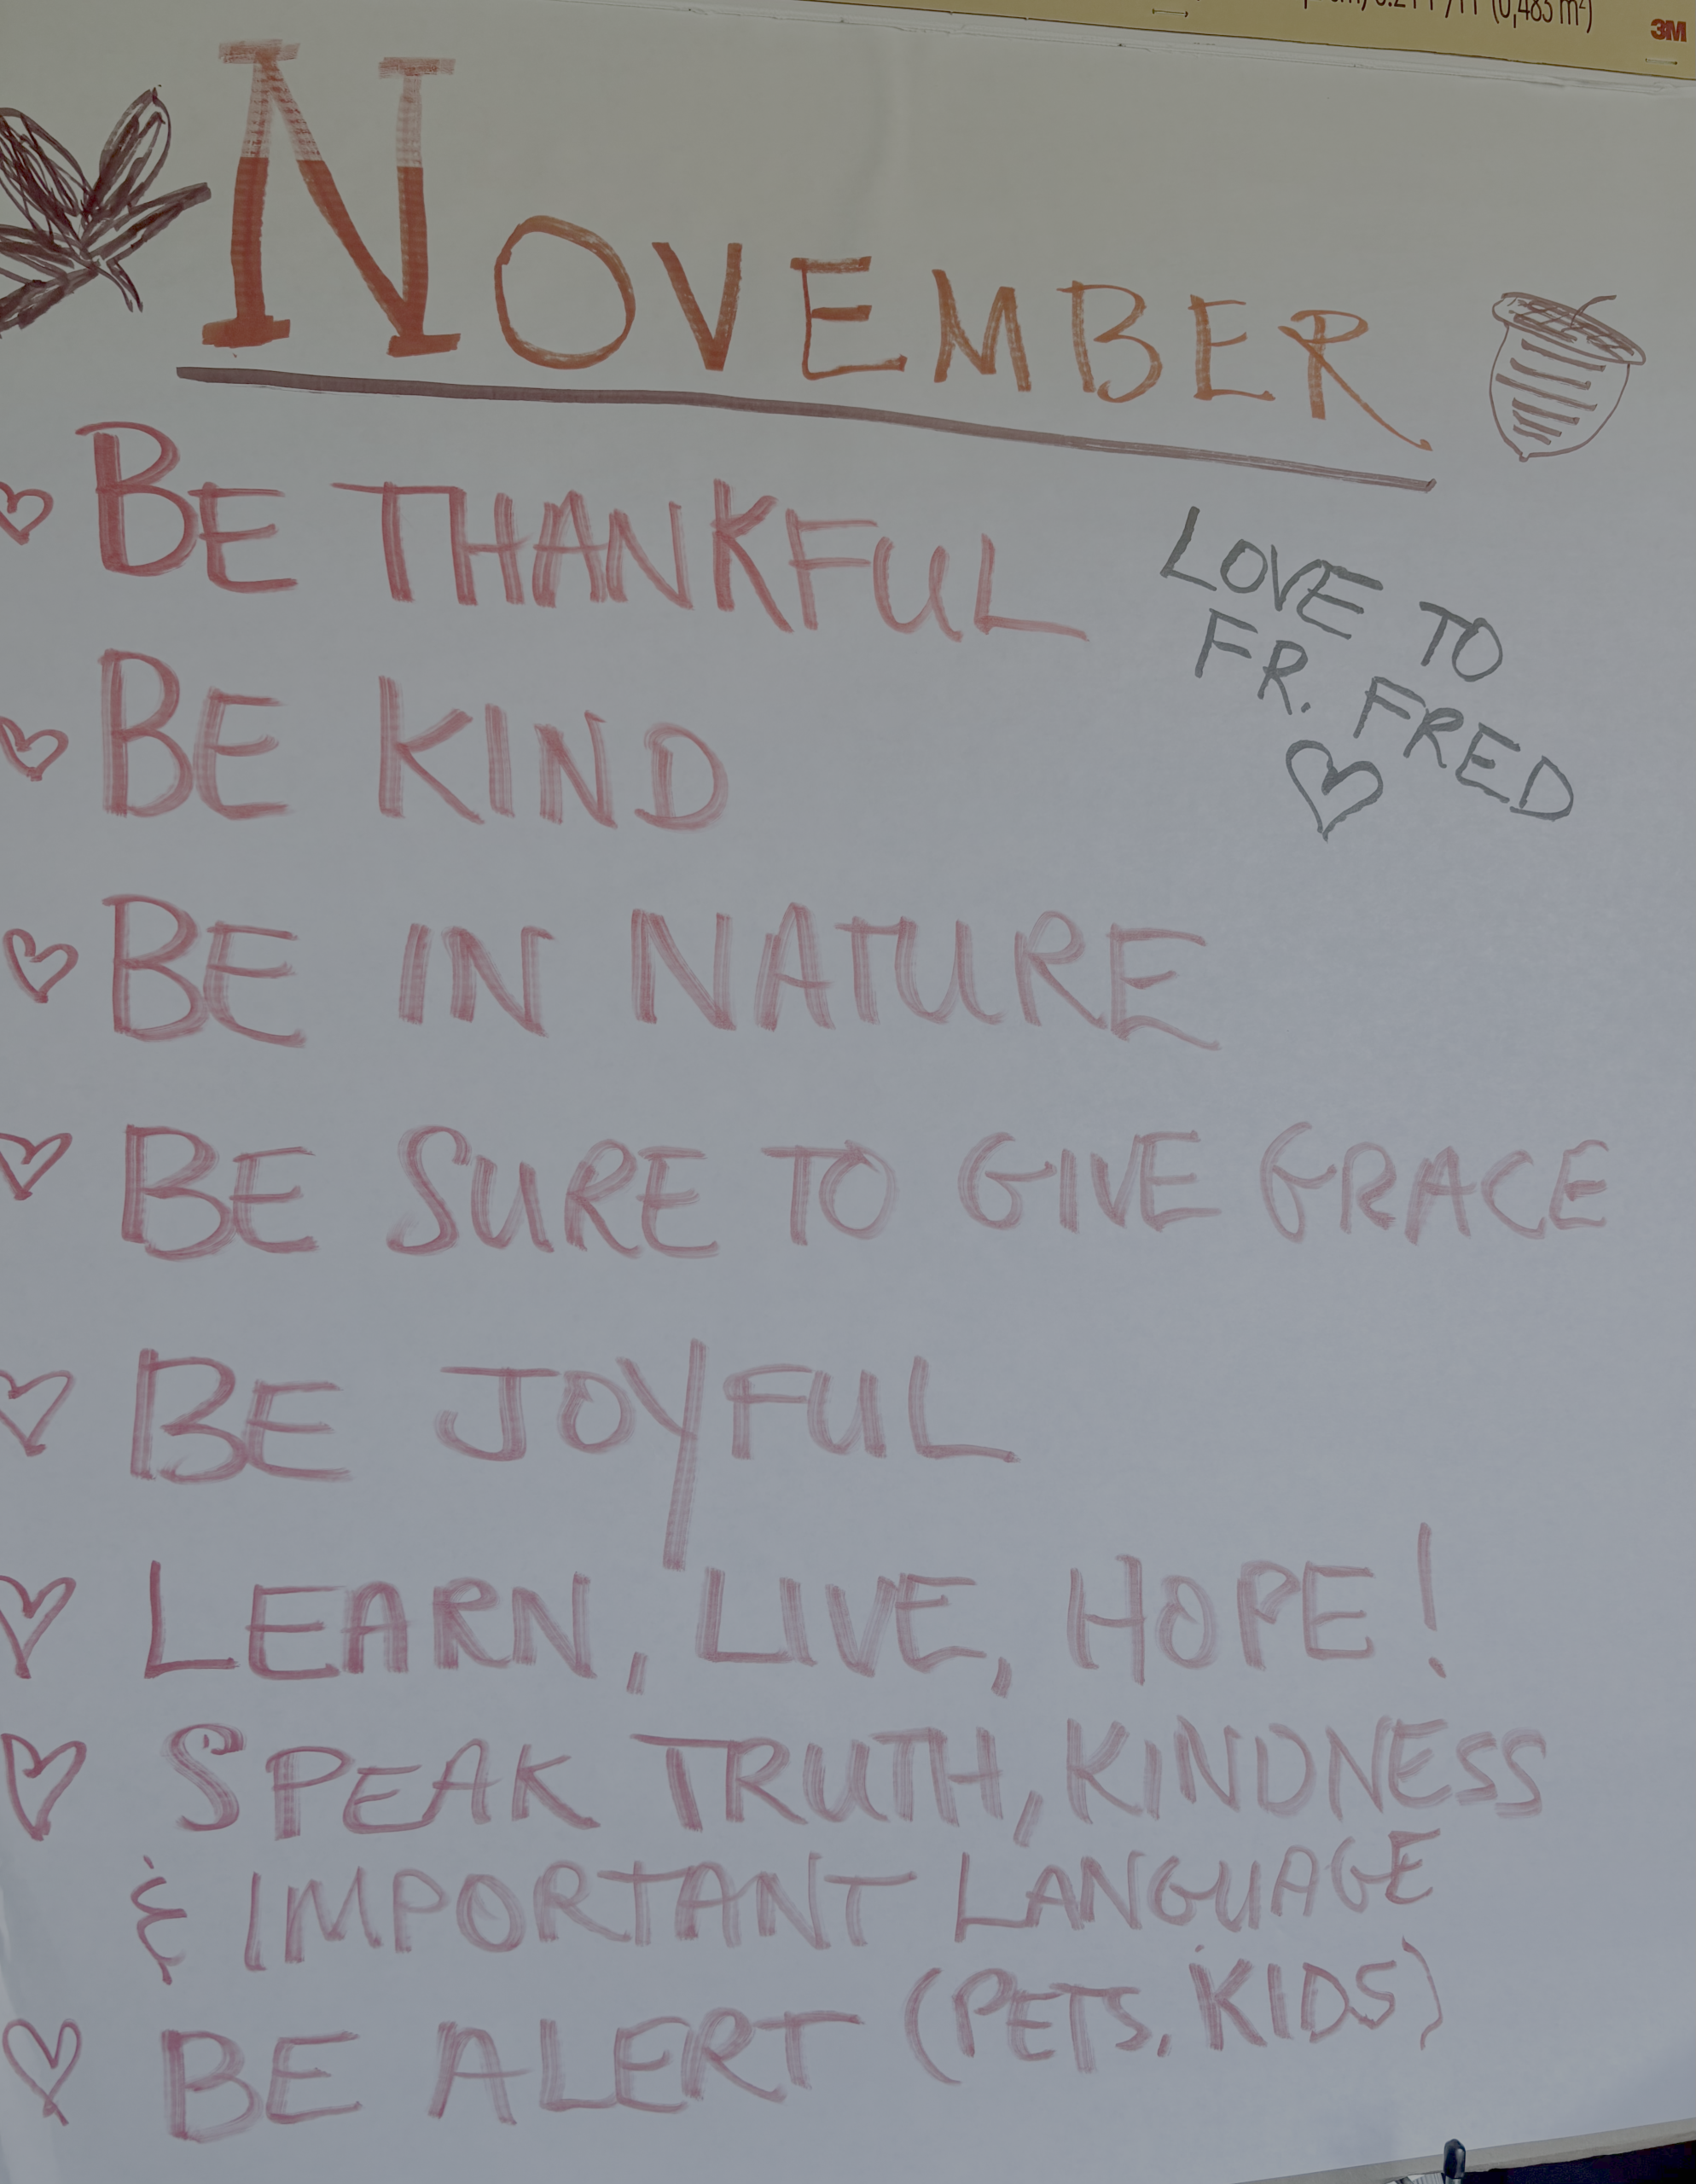 (0,483 m²)
3M
NOVEMBER
BE THANKFUL
LOVE TO
FR. FRED
BE KIND
BE IN NATURE
BE SURE TO GIVE GRACE
BE JOYFUL
LEARN, LIVE, HOPE!
SPEAK TRUTH, KINDNESS
& IMPORTANT LANGUAGE
BE ALERT (PETS, KIDS)